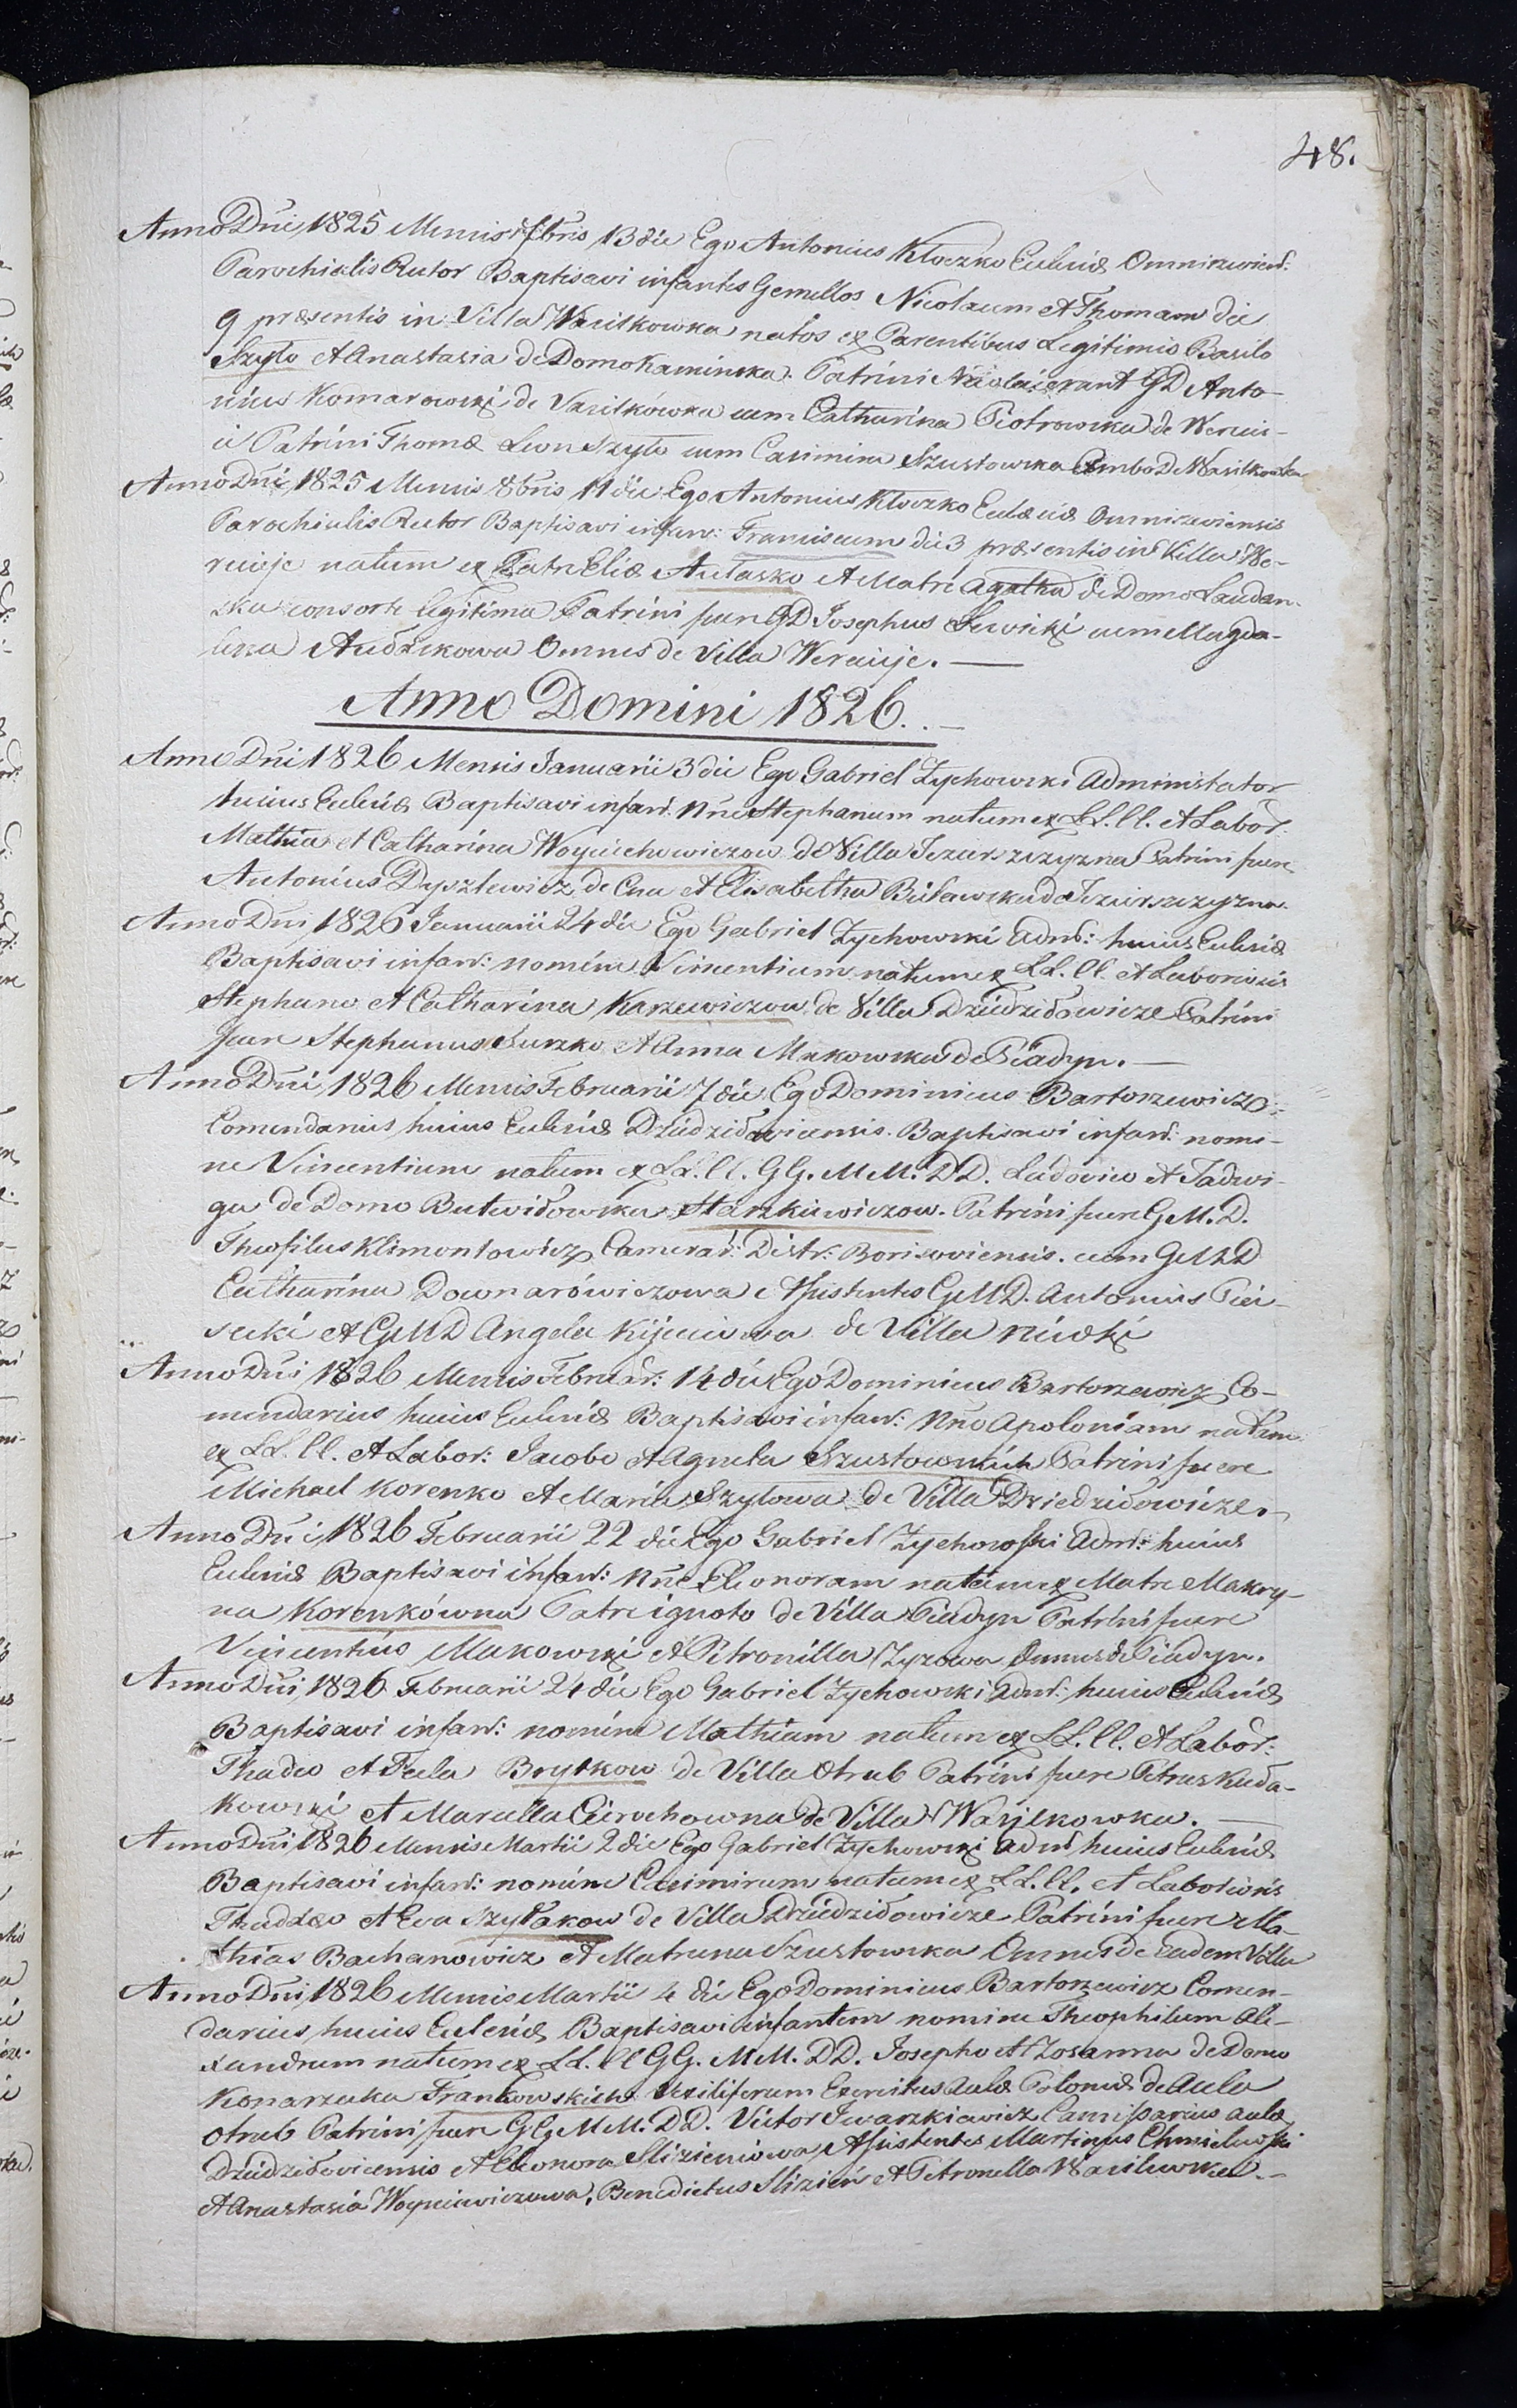 48.
Anno Dni 1825 Mensis 7bris 13 die Ego Antonius Kloczko Eccleæ Omniszewiens:
Parochialis Rector Baptisavi infantes Gemellos Nicolaum et Thomam die
9 præsentis in Villa Wasilkowka natos ex Parentibus Legitimis Basilo
Szyło et Anastasia de Domo Kaminska. Patrini Nicolai erant GD Anto-
nius Komarowski de Vasilkówka cum Catharina Piotrowska de Wercin-
ie Patrini Thomæ Leon Szyło cum Casimira Szustowska Ambo De Wasilkowka
Anno Dni 1825 Mensis 8bris 11 die Ego Antonius Kloczko Ecclæiæ Omniszewiensis
Parochialis Rector Baptisavi infan: Franciscum die 3 præsentis in Villa We-
reieje natum ex Patre Eliæ Aułasko et Matre Agatha de Domo Laudan-
ska consorte legitima Patrini fuere GD Josephus Lewicki cum Magda-
lena Audzikowa Omnes de Villa Wercieje.
Anno Domini 1826.
Anno Dni 1826 Mensis Januarii 3 die Ego Gabriel Zychowski Administator
huius Eccleiæ Baptisavi infan: Nne Stephanum natum ex LL. CC. et Labor:
Mathia et Catharina Woyciechowiczow de Villa Jezuirszczyzna Patrini fuere
Antonius Dyszlewicz de Cna et Elisabetha Bulawska de Jezuirszczyzna.
Anno Dni 1826 Januarii 24 die Ego Gabriel Zychowski Admi: huius Eccleiæ
Baptisavi infan: nomine Vincentium natum ex LL. CC. et Laboriosis
Stephano et Catharina Karzewiczow de Villa Dziedziłowicze Patrini
fuere Stephanus Suszko et Anna Makowska de Piadyn.
Anno Dni 1826 Mensis Februarii 7 die Ego Dominicus Bartoszewicz
Comendarius huius Eccleiæ Dziedziłoviciensis Baptisavi infan: nomi-
ne Vincentium natum ex LL. CC. GG. MM. DD. Ludovico et Jadwi-
ga de Domo Butwiłowska Staszkiewiczow. Patrini fuere G.M.D.
Theofilus Klimontowicz Camerar: Distr: Borisoviensis. cum GMD
Catharina Downarówiczowa Assistentes GMD. Antonius Pia-
secki et GMD Angela Kijeniowa de Villa niwki
Anno Dni 1826 Mensis Februar: 14 die Ego Dominicus Bartoszewicz Co-
mendarius huius Eccleiæ Baptisavi infan: Nne Apoloniam natam
ex LL. CC. et Labor: Jacobo et Agneta Szustowskich Patrini fuere
Michael Korenko et Maria Szyłowa de Villa Dziedziłowicze.
Anno Dni 1826 Februarii 22 die Ego Gabriel Zychowski Admi: huius
Eccleiæ Baptisavi infan: Nne Eleonoram natam ex Matre Makry-
na Korenkówna Patre ignoto de Villa Piadyn Patrini fuere
Vincentius Makowski et Petronilla Zyzowa Omnes de Piadyn.
Anno Dni 1826 Februarii 24 die Ego Gabriel Zychowski Admi: huius Eccleiæ
Baptisavi infan: nomine Mathiam natum ex LL. CC. et Labor:
Thadeo et Tecla Brytkow de Villa Otrub Patrini fuere Petrus Kuda-
kowski et Marcella Cierochowna de Villa Wasilkowka.
Anno Dni 1826 Mensis Martii 2 die Ego Gabriel Zychowski Admi huius Eccleiæ
Baptisavi infan: nomine Casimirum natum ex LL. CC. et Laboriosis
Thaddæo et Eva Szyłakow de Villa Dziedziłowicze Patrini fuere Ma-
thias Bachanowicz et Matruna Szustowska Omnes de eadem Villa
Anno Dni 1826 Mensis Martii 4 die Ego Dominicus Bartoszewicz Comen-
darius huius Eccleiæ Baptisavi infantem nomine Theophilum Ale-
xandrum natum ex LL. CC GG. MM. DD. Josepho et Zosanna de Domo
Konarzeska Frankowskich Vexiliferum Exercitus Aulæ Poloniæ de Aula
Otrub Patrini fuere GG MM. DD. Victor Iwaszkiewicz Camisarius aulæ
Dziedziłoviciensis et Eleonora Slizieniowa Assistentes Martinus Chmielewski
et Anastasia Woynicwiczowa, Benedictus Slizień et Petronella Wasilewska.